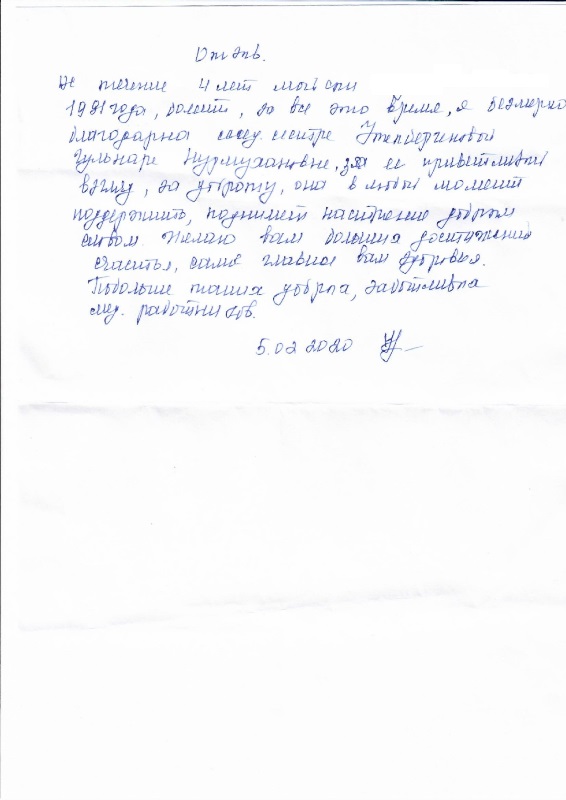 Отзыв.
В течение 4 лет мой сын
1991 года, болеет, за все это время, я безмерно
благодарна мед. сестре Утепбергеновой
Гульнаре Нурмухановне, за ее приветливый
взгляд, за доброту, она в любой момент
поддержит, поднимет настроение добрым
словом. Желаю вам больших достижений
счастья, самое главное вам здоровья.
Побольше таких добрых, заботливых
мед. работников.
5.02 2020